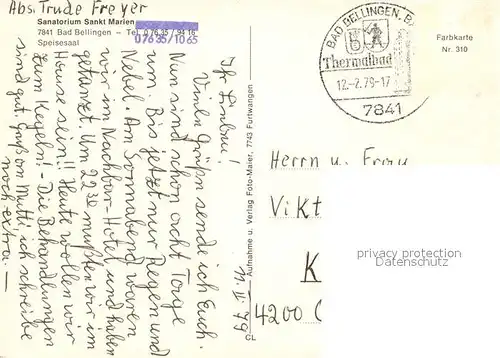 Abs. Trude Freyer
Sanatorium Sankt Marien
7841 Bad Bellingen – Tel. 0 76 35 / 94 16
07635/1065
Speisesaal
Ihr Lieben!
Viele Grüße sende ich Euch.
Nun sind schon acht Tage
rum. Bis jetzt nur Regen und
Nebel. Am Sonnabend waren
wir im Nachbar-Hotel und haben
getanzt. Um 22 30 mußten wir im
Hause sein!! Heute wollen wir
zum Kegeln! – Die Behandlungen
sind gut. Gruß an Mutti, ich schreibe
noch extra. –
11. II. 79
Aufnahme u. Verlag Foto-Maier, 7743 Furtwangen
CL
BAD BELLINGEN, B
Thermalbad
12.-2.79-17
7841
Farbkarte
Nr. 310
Herrn u. Frau
Vikt
K
4200 O
privacy protection
oldthing.com